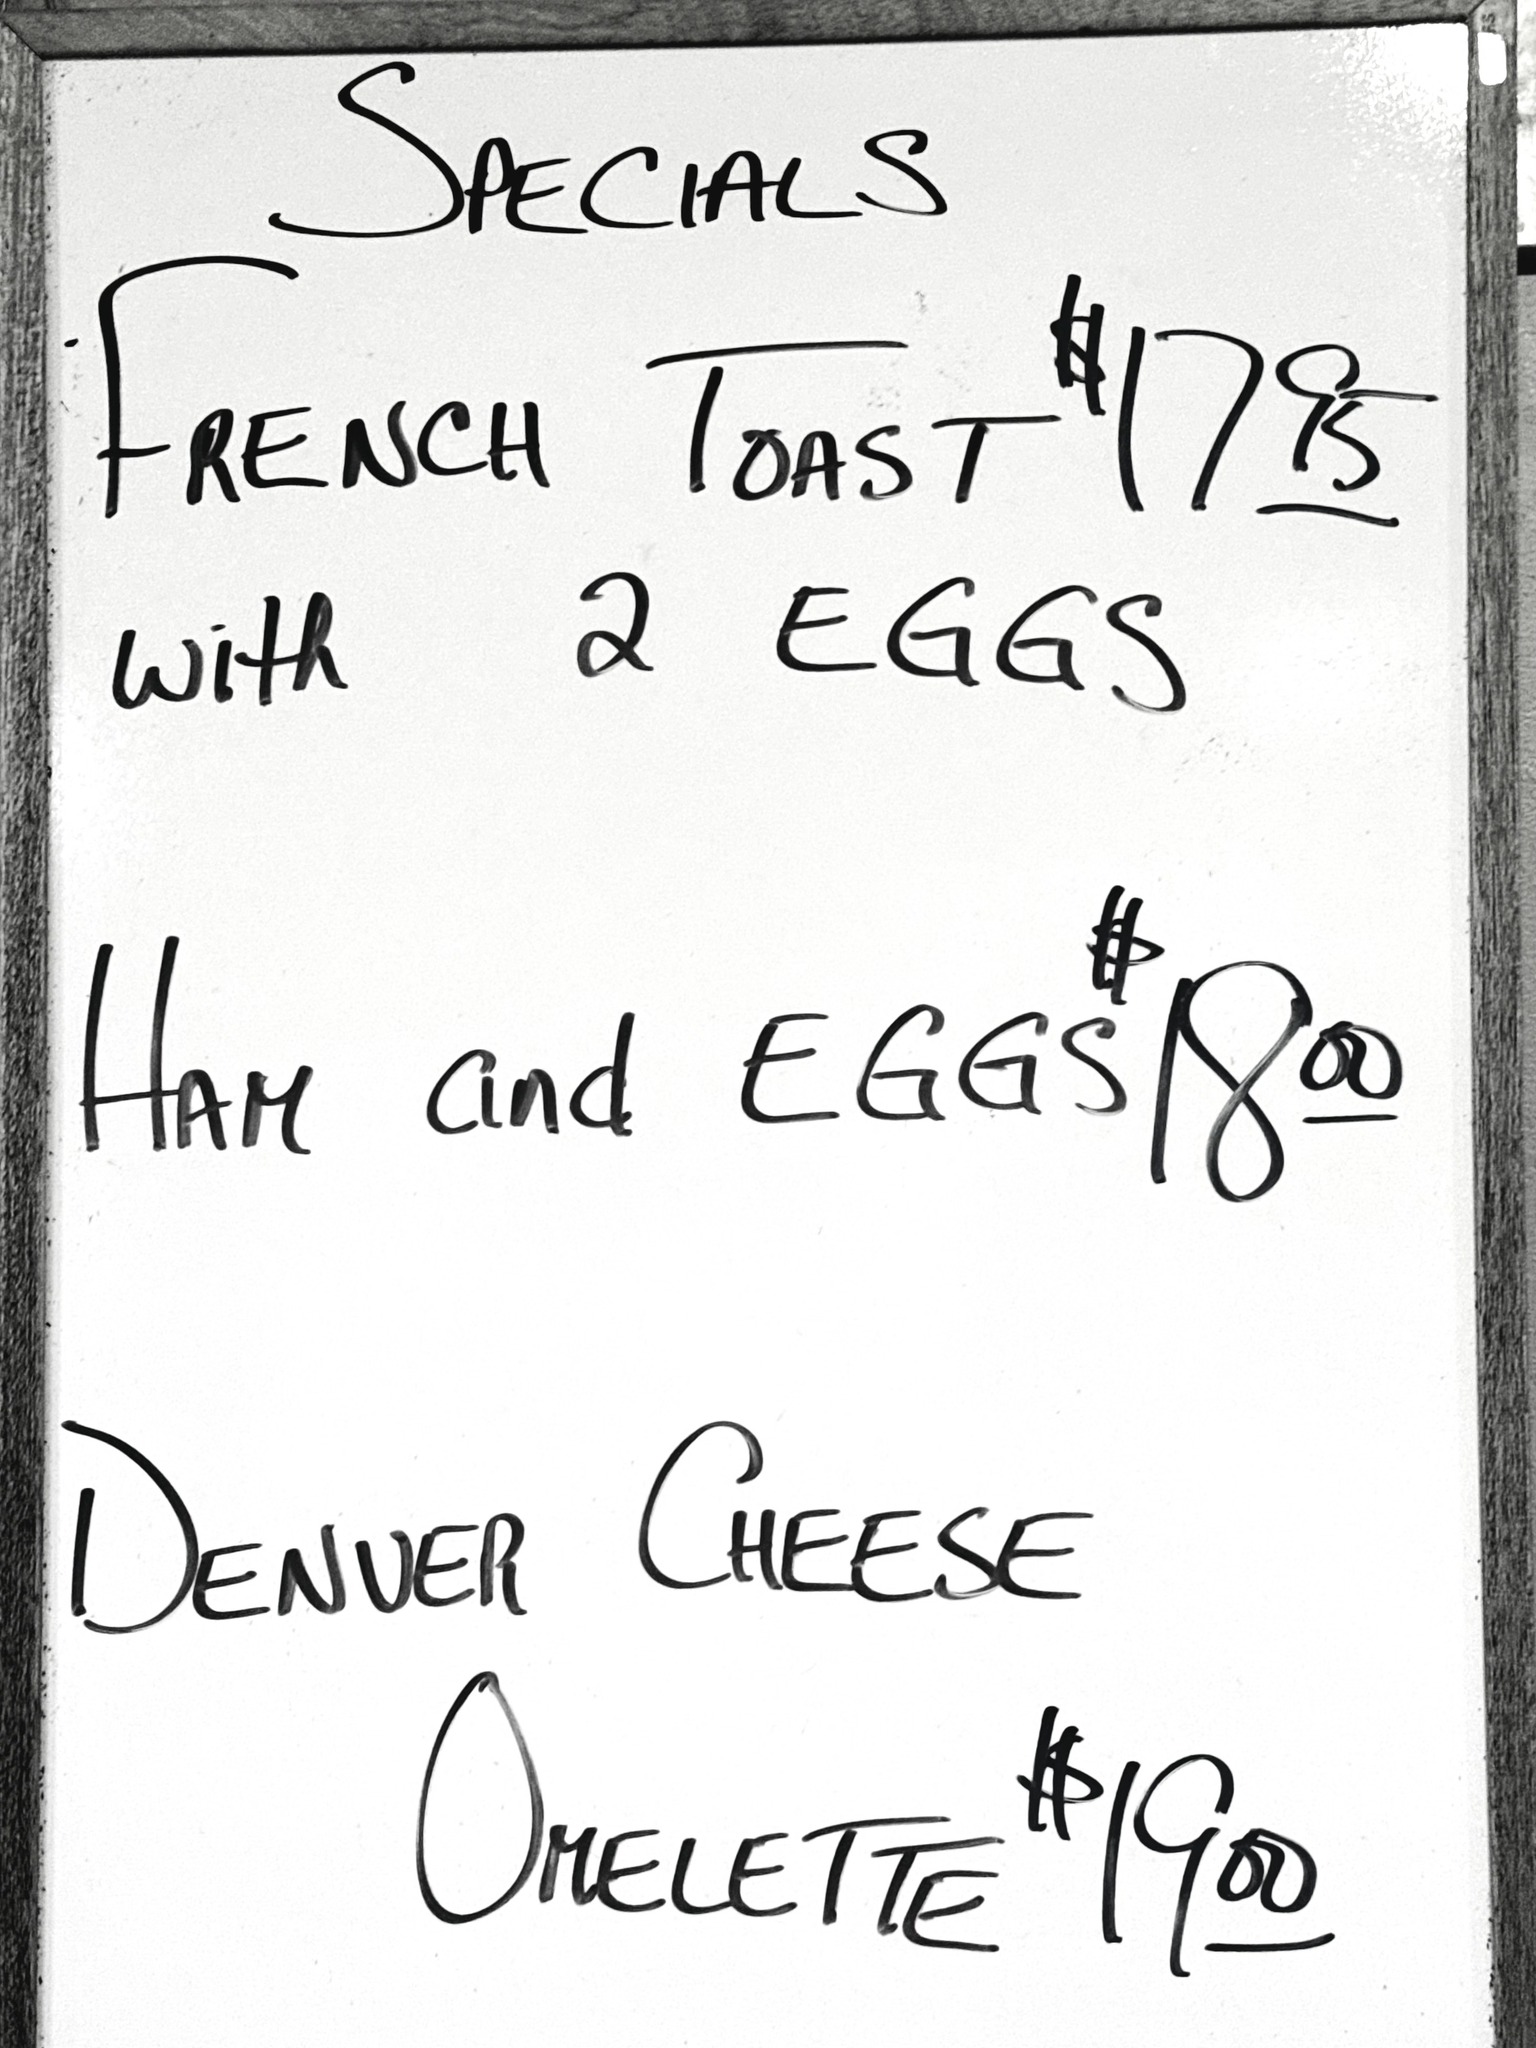 SPECIALS
FRENCH TOAST $17 95
with 2 EGGS
HAM and EGGS $18 00
DENVER CHEESE
OMELETTE $19 00